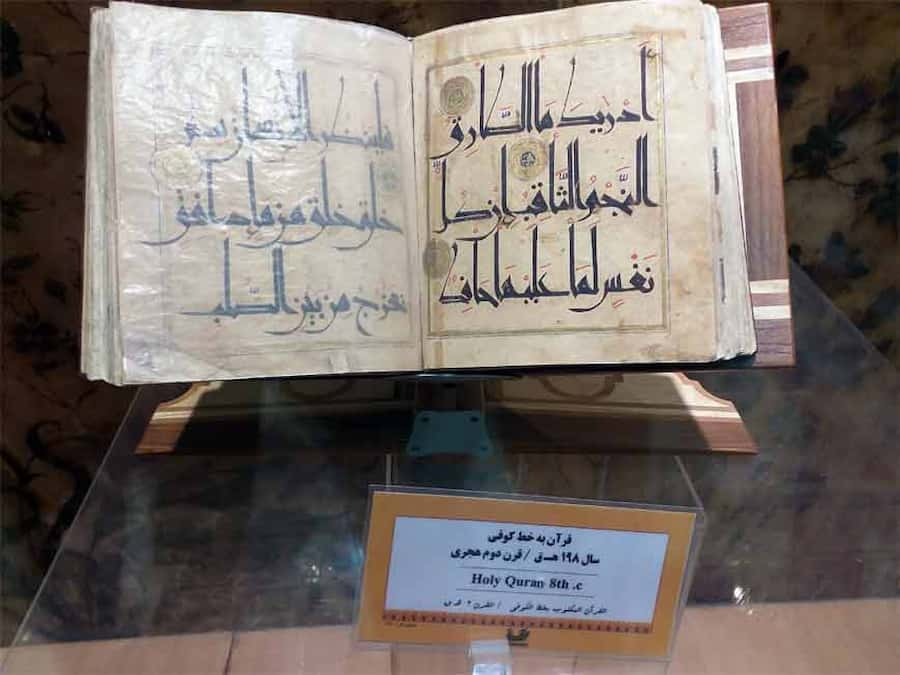 أدريك ما الطَّارِق
النَّجْمُ الثَّاقِب إن كل
نَفْسٍ لَمَا عليها حافظ
فلينظر الإنسان مم
خلق خلق من ماء دافق
يخرج من بين الصلب
قرآن به خط کوفی
سال ۱۹۸ هـ.ق / قرن دوم هجری
Holy Quran 8th .c
القرآن المکتوب بخط الکوفی / القرن ۲